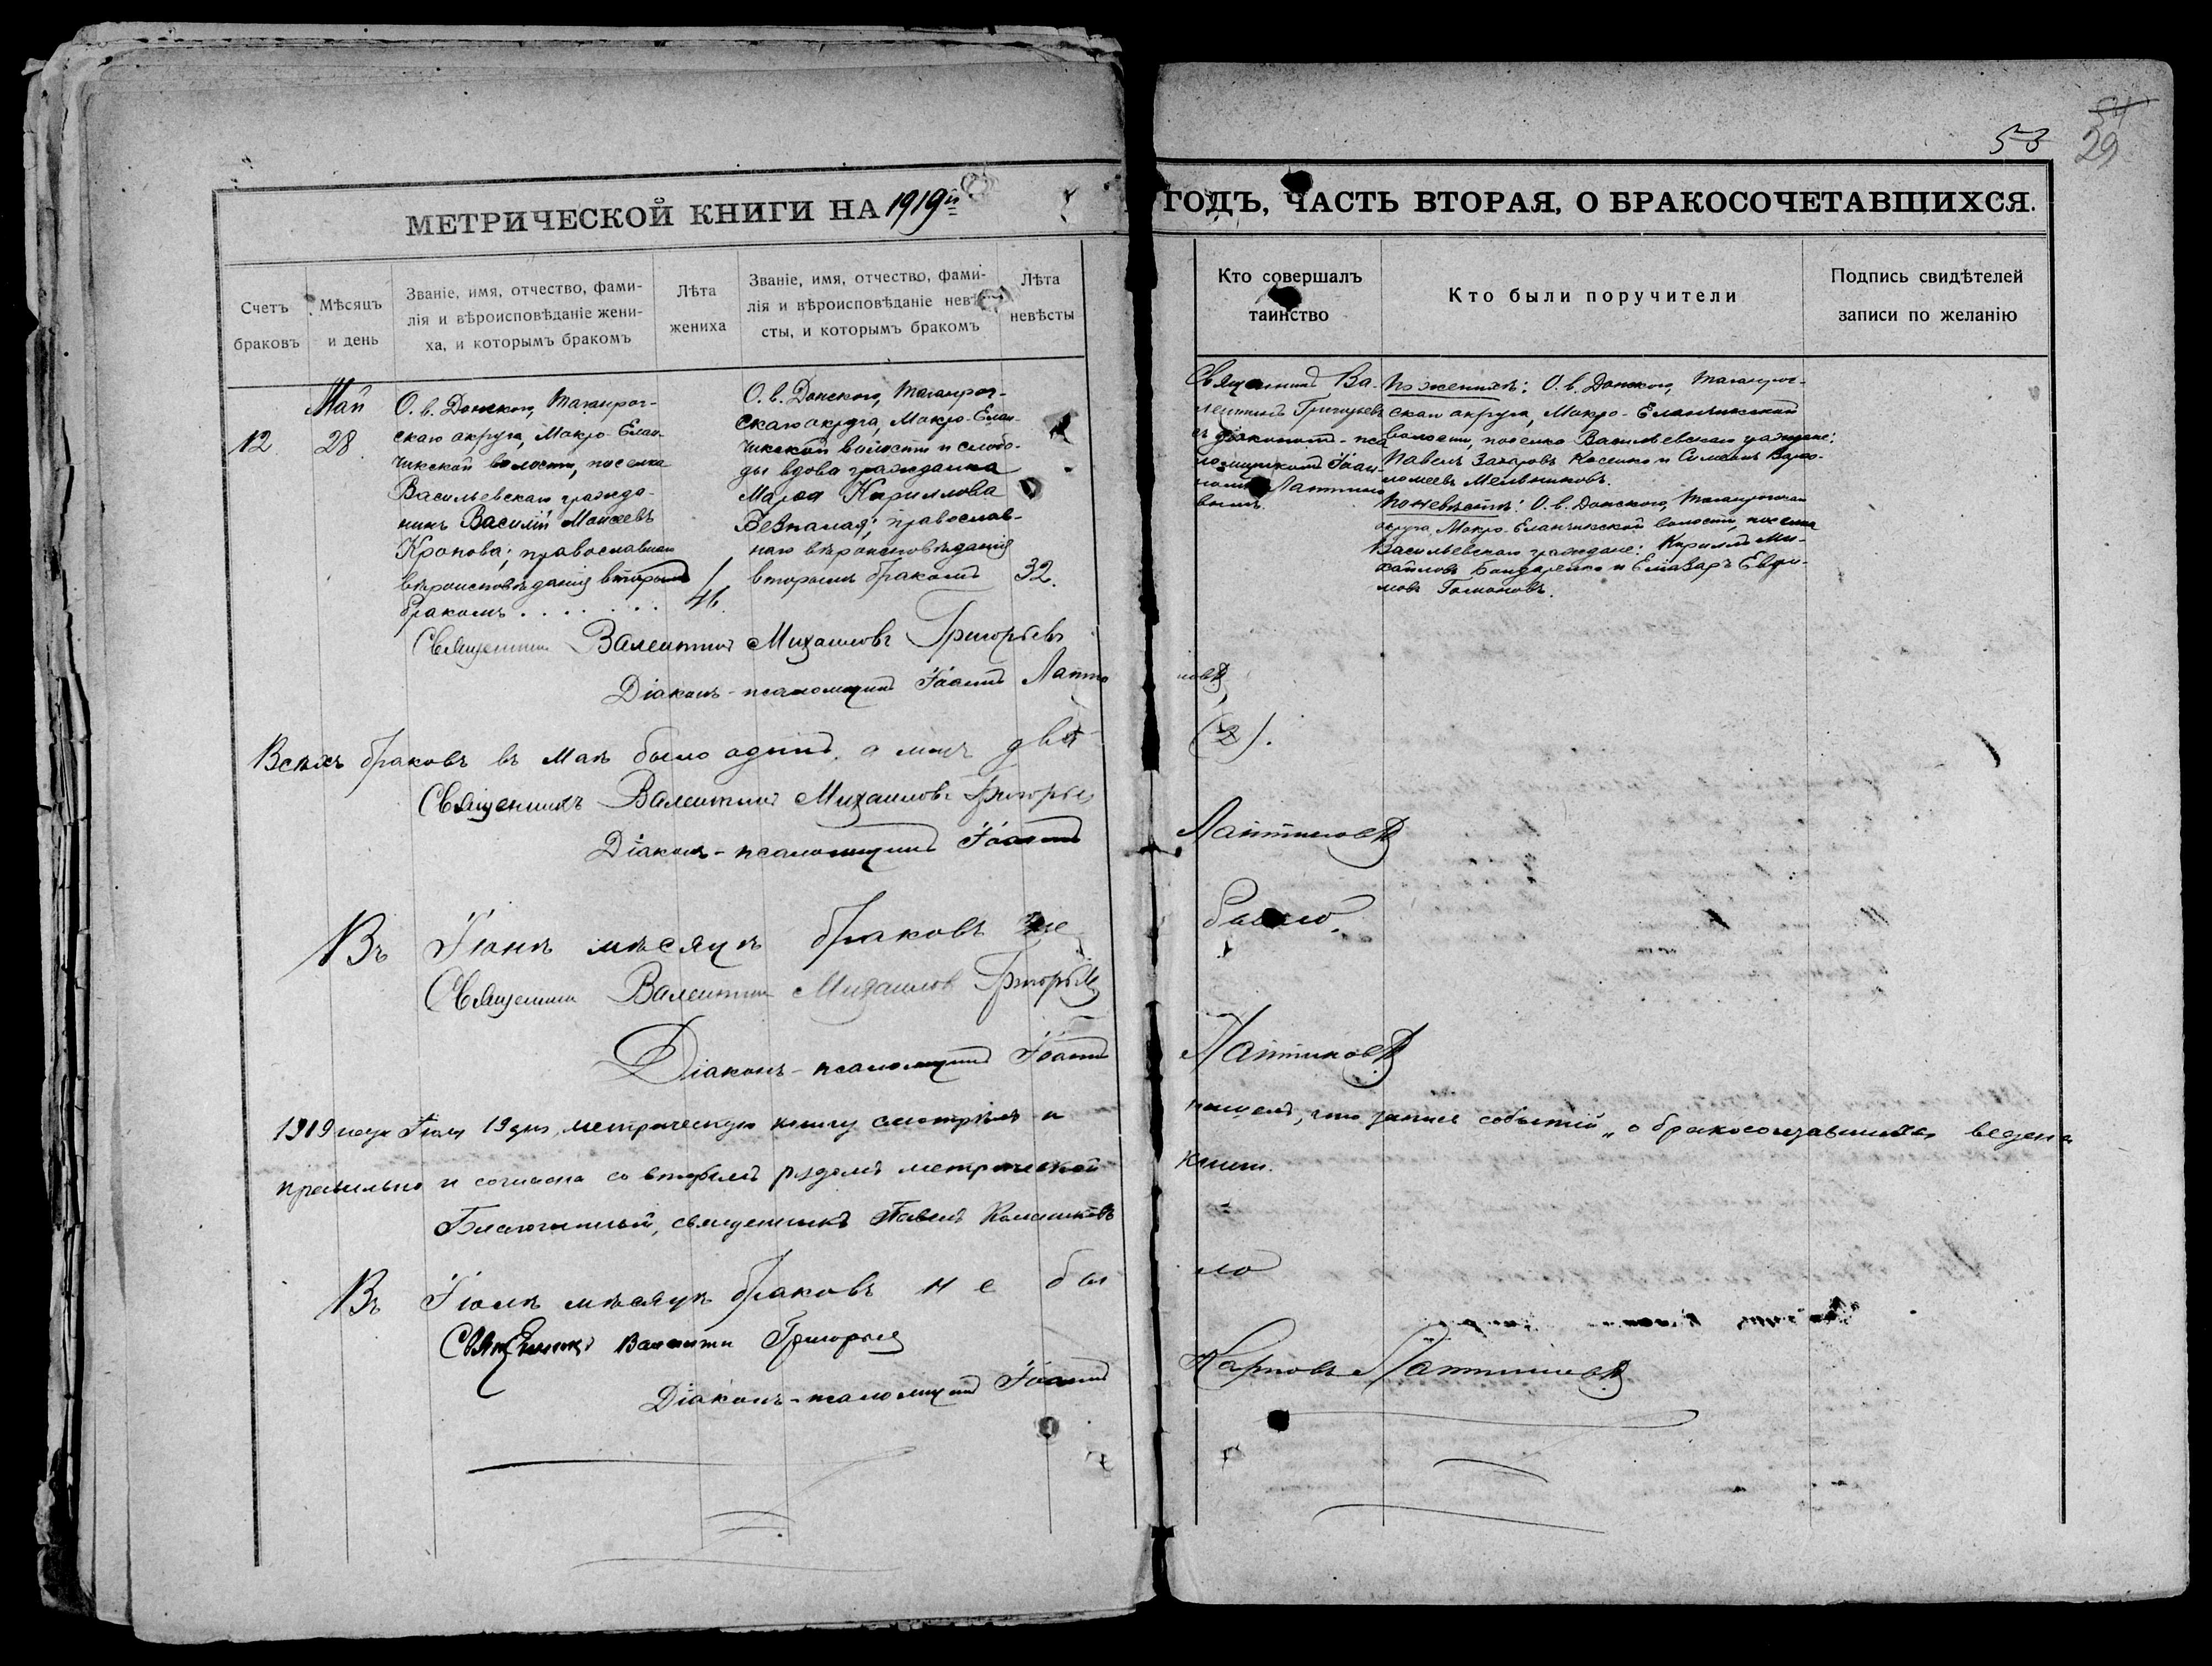 58
54
29
МЕТРИЧЕСКОЙ КНИГИ НА 1919й ГОДЪ, ЧАСТЬ ВТОРАЯ, О БРАКОСОЧЕТАВШИХСЯ.
Счетъ
браковъ
Мѣсяцъ
и день
Званіе, имя, отчество, фами-
лія и вѣроисповѣданіе жени-
ха, и которымъ бракомъ
Лѣта
жениха
Званіе, имя, отчество, фами-
лія и вѣроисповѣданіе невѣ-
сты, и которымъ бракомъ
Лѣта
невѣсты
Кто совершалъ
таинство
Кто были поручители
Подпись свидѣтелей
записи по желанію
12
Май
28
О. в. Донского, Таганрог-
скаго округа, Мокро-Елан-
чикской волости, поселка
Васильевскаго гражда-
нинъ Василій Моисеевъ
православнаго
вѣроисповѣданія вторымъ
бракомъ
О. в. Донского, Таганрог-
скаго округа, Мокро-Елан-
чикской волости и слобо-
ды вдова гражданка
Кириллова
православ-
наго вѣроисповѣданія
вторымъ бракомъ
32.
Священникъ Ва-
лентинъ Григорьевъ
съ діакономъ-пса
ломщикомъ Іоан-
номъ Лаптино
вымъ.
По женихѣ: О. в. Донского, Таганрог-
скаго округа, Мокро-Еланчикской
волости, поселка Васильевскаго граждане:
Павелъ Захаровъ Косенко и Симеонъ Варѳо-
ломеевъ Мельниковъ.
По невѣстѣ: О. в. Донского, Таганрогскаго
округа, Мокро-Еланчикской волости, поселка
Васильевскаго граждане: Кириллъ Ми-
хайловъ Бондаренко и Елиазаръ Евфи-
мовъ Гомоновъ.
Священникъ Валентинъ Михаиловъ Григорьевъ
Діаконъ-псаломщикъ Іоаннъ Лапти новъ
Всѣхъ браковъ въ Маѣ было одинъ, а лицъ два (2).
Священникъ Валентинъ Михаиловъ Григорьевъ
Діаконъ-псаломщикъ Іоаннъ Лаптиновъ
Въ Іюнѣ мѣсяцѣ браковъ не было.
Священникъ Валентинъ Михаиловъ Григорьевъ
Діаконъ-псаломщикъ Іоаннъ Лаптиновъ
1919 года Іюля 19 дня, метрическую книгу смотрѣлъ и нашелъ, что запись событій „о бракосочетавшихся ведена
правильно и согласна со вторымъ метрической книги.
Благочинный, священникъ Павелъ
Въ Іюлѣ мѣсяцѣ браковъ не бы ло
Священникъ Валентинъ Григорьевъ
Діаконъ-псаломщикъ Іоаннъ Карповъ Лаптиновъ